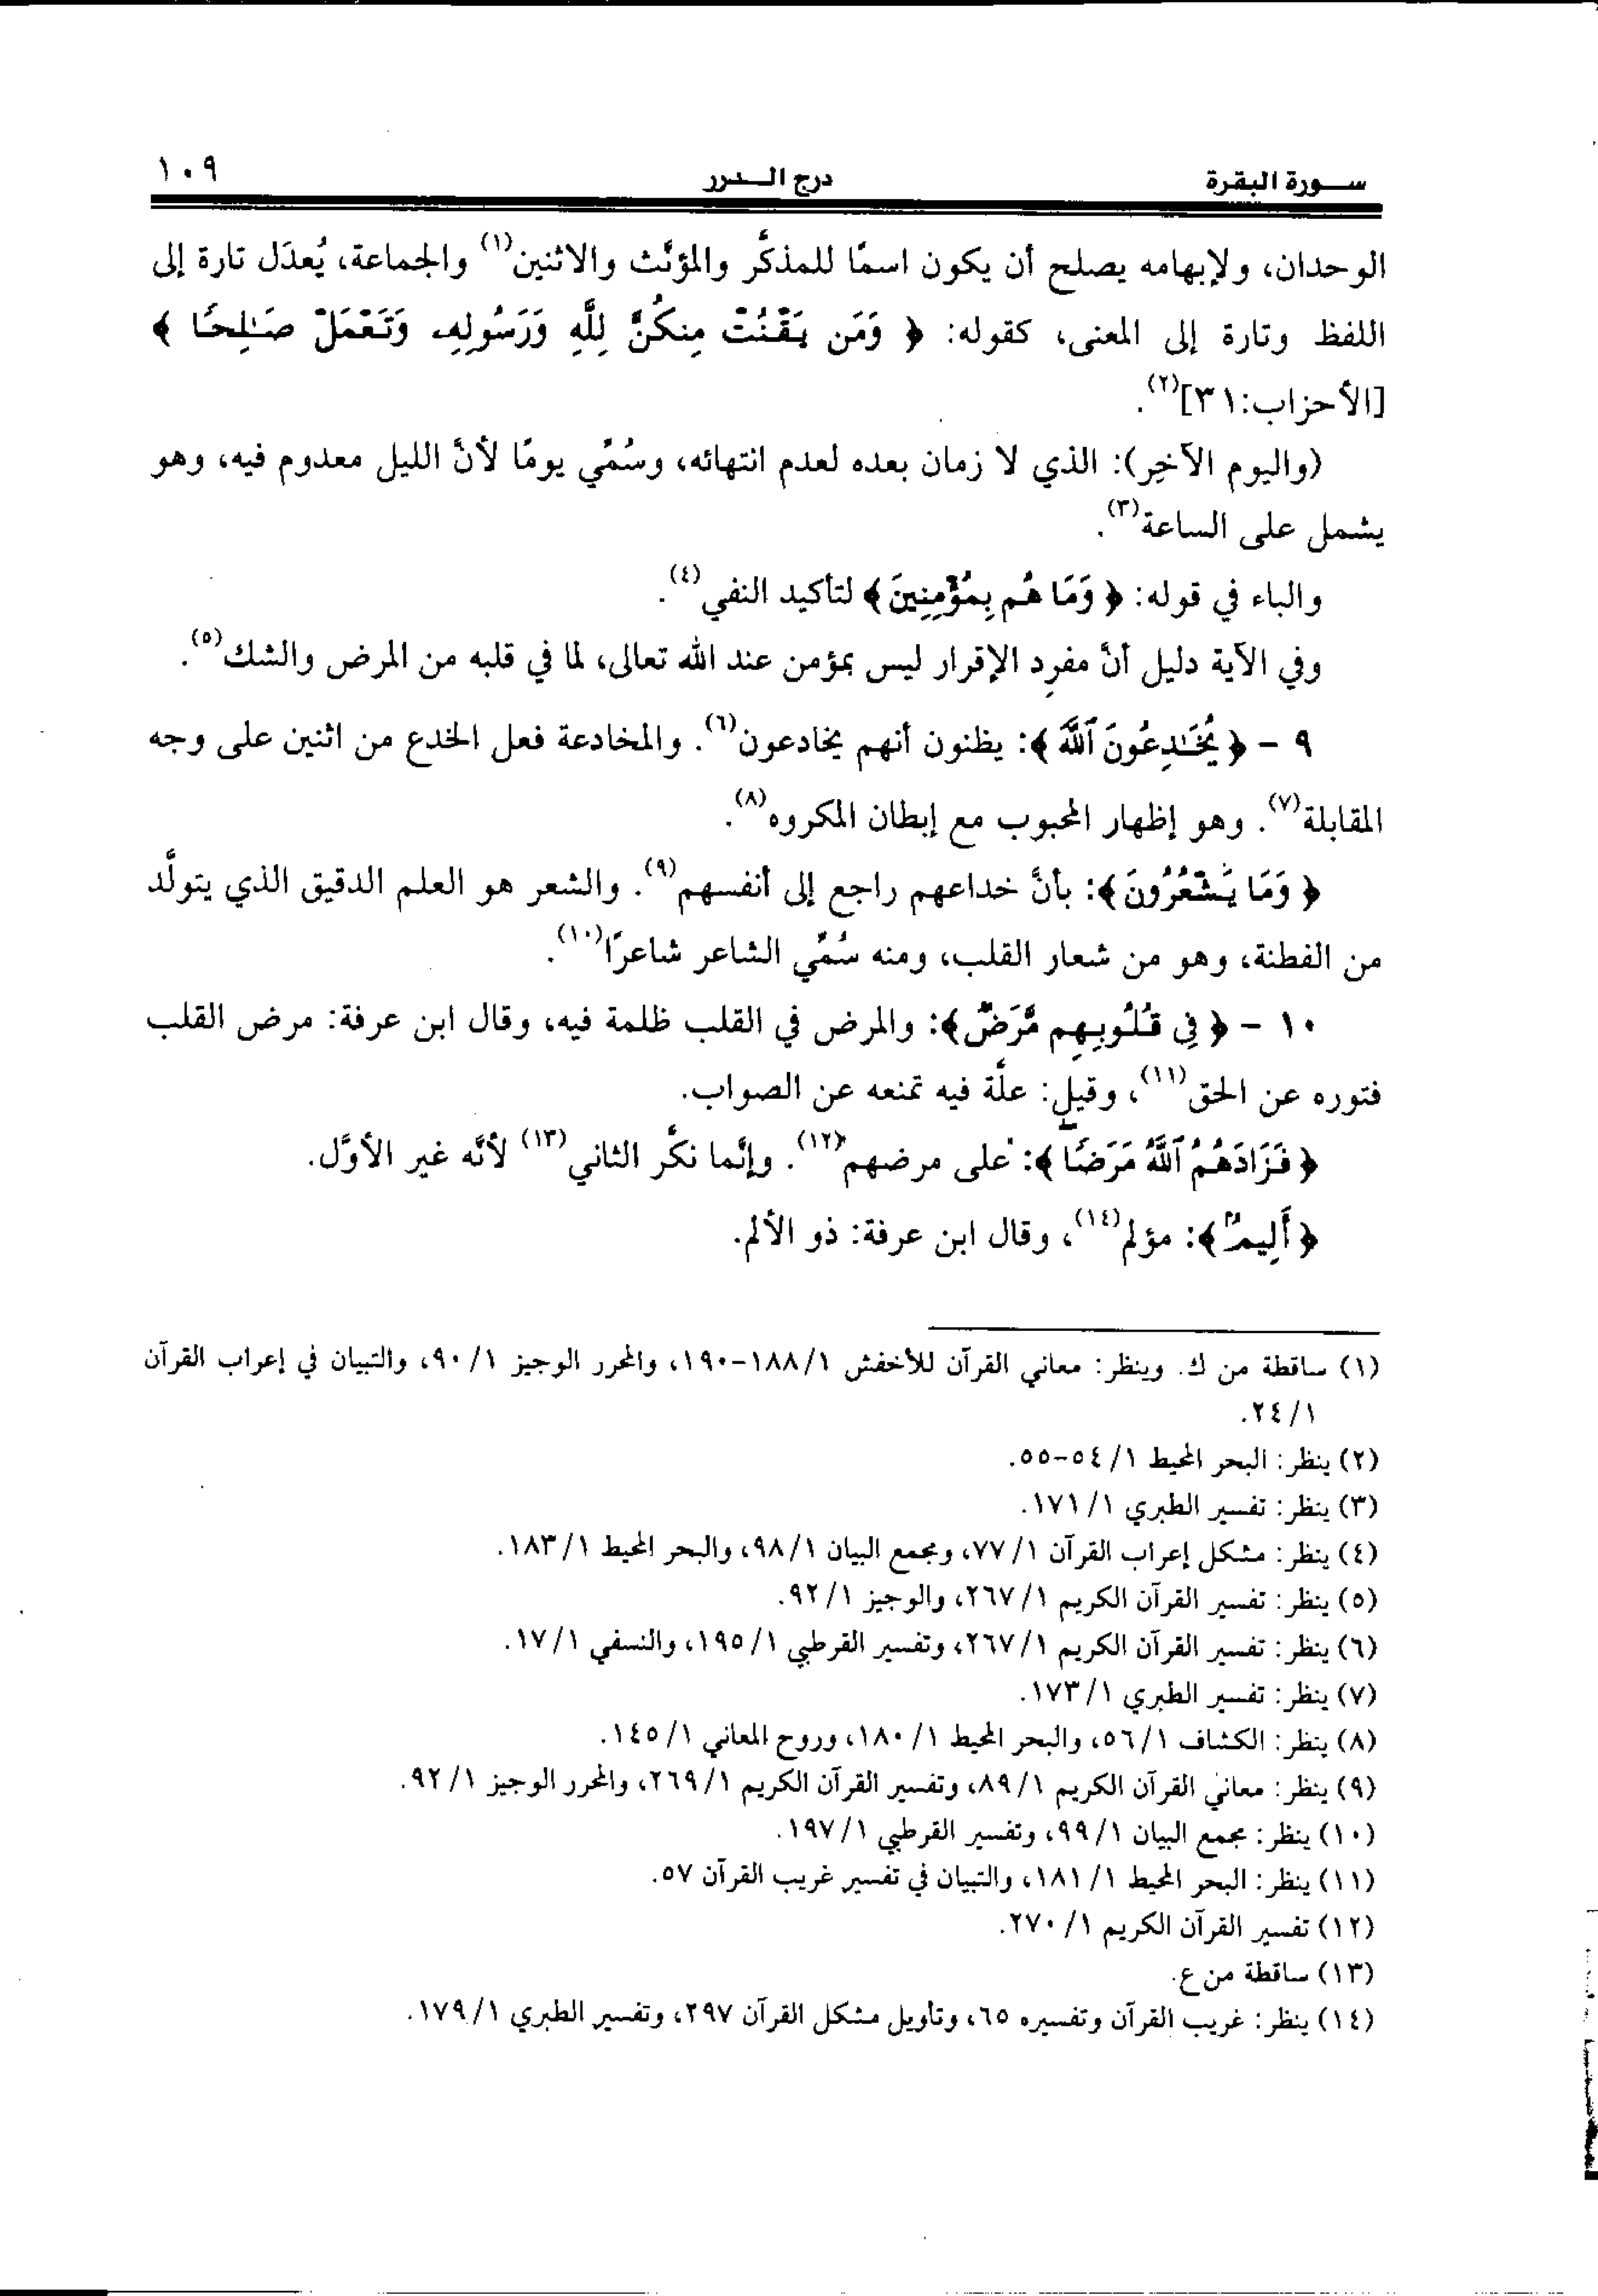 سورة البقرة درج الدرر ١٠٩
الوحدان، ولإبهامه يصلح أن يكون اسمًا للمذكَّر والمؤنَّث والاثنين(١) والجماعة، يُعدَل تارة إلى
اللفظ وتارة إلى المعنى، كقوله: ﴿ وَمَن يَقْنُتْ مِنكُنَّ لِلَّهِ وَرَسُولِهِۦ وَتَعْمَلْ صَـٰلِحًا ﴾
[الأحزاب:٣١](٢).
(واليوم الآخِر): الذي لا زمان بعده لعدم انتهائه، وسُمِّي يومًا لأنَّ الليل معدوم فيه، وهو
يشمل على الساعة(٣).
والباء في قوله: ﴿ وَمَا هُم بِمُؤْمِنِينَ ﴾ لتأكيد النفي(٤).
وفي الآية دليل أنَّ مفرِد الإقرار ليس بمؤمن عند الله تعالى، لما في قلبه من المرض والشك(٥).
٩ - ﴿ يُخَـٰدِعُونَ ٱللَّهَ ﴾: يظنون أنهم يخادعون(٦). والمخادعة فعل الخدع من اثنين على وجه
المقابلة(٧). وهو إظهار المحبوب مع إبطان المكروه(٨).
﴿ وَمَا يَشْعُرُونَ ﴾: بأنَّ خداعهم راجع إلى أنفسهم(٩). والشعر هو العلم الدقيق الذي يتولَّد
من الفطنة، وهو من شعار القلب، ومنه سُمِّي الشاعر شاعرًا(١٠).
١٠ - ﴿ فِى قُلُوبِهِم مَّرَضٌ ﴾: والمرض في القلب ظلمة فيه، وقال ابن عرفة: مرض القلب
فتوره عن الحق(١١)، وقيل: علَّة فيه تمنعه عن الصواب.
﴿ فَزَادَهُمُ ٱللَّهُ مَرَضًا ﴾: على مرضهم(١٢). وإنَّما نكَّر الثاني(١٣) لأنَّه غير الأوَّل.
﴿ أَلِيمٌ ﴾: مؤلم(١٤)، وقال ابن عرفة: ذو الألم.
(١) ساقطة من ك. وينظر: معاني القرآن للأخفش ١/ ١٨٨-١٩٠، والمحرر الوجيز ١/ ٩٠، والتبيان في إعراب القرآن
١/ ٢٤.
(٢) ينظر: البحر المحيط ١/ ٥٤-٥٥.
(٣) ينظر: تفسير الطبري ١/ ١٧١.
(٤) ينظر: مشكل إعراب القرآن ١/ ٧٧، ومجمع البيان ١/ ٩٨، والبحر المحيط ١/ ١٨٣.
(٥) ينظر: تفسير القرآن الكريم ١/ ٢٦٧، والوجيز ١/ ٩٢.
(٦) ينظر: تفسير القرآن الكريم ١/ ٢٦٧، وتفسير القرطبي ١/ ١٩٥، والنسفي ١/ ١٧.
(٧) ينظر: تفسير الطبري ١/ ١٧٣.
(٨) ينظر: الكشاف ١/ ٥٦، والبحر المحيط ١/ ١٨٠، وروح المعاني ١/ ١٤٥.
(٩) ينظر: معاني القرآن الكريم ١/ ٨٩، وتفسير القرآن الكريم ١/ ٢٦٩، والمحرر الوجيز ١/ ٩٢.
(١٠) ينظر: مجمع البيان ١/ ٩٩، وتفسير القرطبي ١/ ١٩٧.
(١١) ينظر: البحر المحيط ١/ ١٨١، والتبيان في تفسير غريب القرآن ٥٧.
(١٢) تفسير القرآن الكريم ١/ ٢٧٠.
(١٣) ساقطة من ع.
(١٤) ينظر: غريب القرآن وتفسيره ٦٥، وتأويل مشكل القرآن ٢٩٧، وتفسير الطبري ١/ ١٧٩.